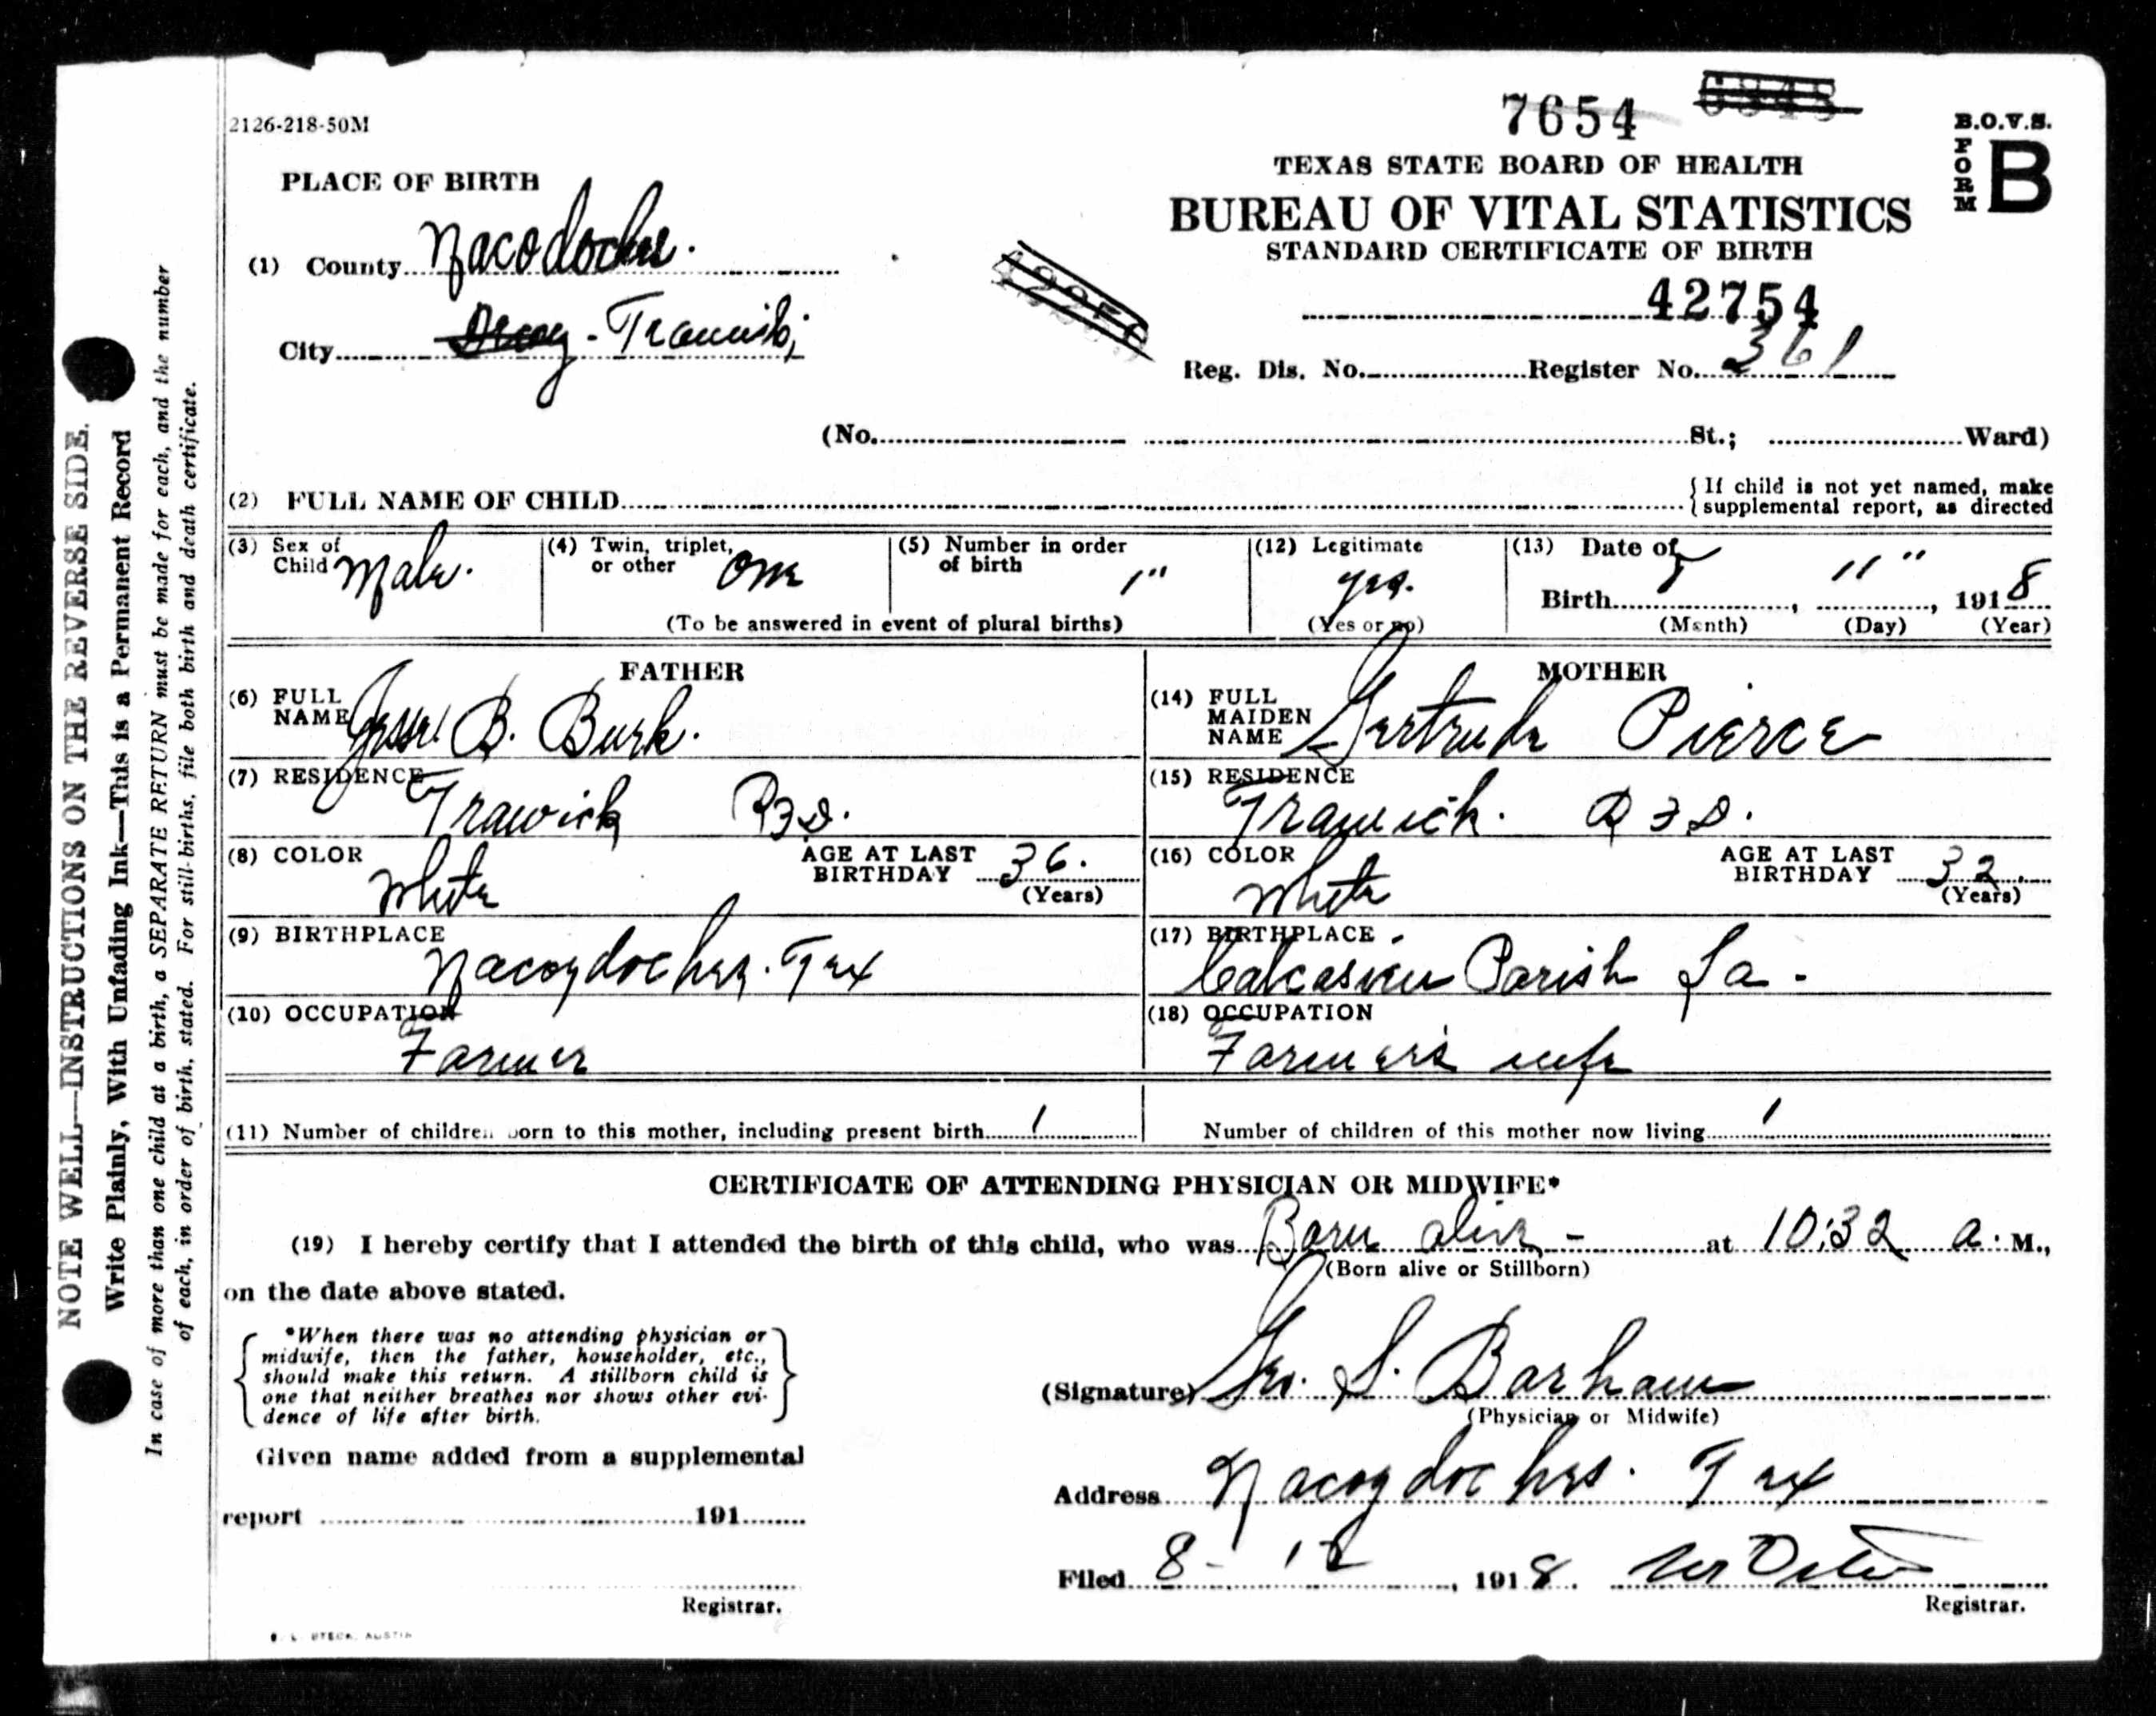 2126-218-50M
7654
B.O.V.S.
FORM B
TEXAS STATE BOARD OF HEALTH
BUREAU OF VITAL STATISTICS
STANDARD CERTIFICATE OF BIRTH
42754
Reg. Dis. No. Register No. 361
PLACE OF BIRTH
(1) County Nacodoches.
City
(No. St.; Ward)
(2) FULL NAME OF CHILD {If child is not yet named, make
supplemental report, as directed
(3) Sex of Child Male.
(4) Twin, triplet, or other One
(5) Number in order of birth 1"
(To be answered in event of plural births)
(12) Legitimate yes.
(Yes or no)
(13) Date of
Birth 11", 1918
(Month) (Day) (Year)
FATHER
(6) FULL NAME Jesse B. Burk.
(7) RESIDENCE Trawick R3D.
(8) COLOR White AGE AT LAST BIRTHDAY 36. (Years)
(9) BIRTHPLACE Nacogdoches. Tex
(10) OCCUPATION Farmer
(11) Number of children born to this mother, including present birth 1
MOTHER
(14) FULL MAIDEN NAME Gertrude Pierce
(15) RESIDENCE Trawick. R3D.
(16) COLOR White AGE AT LAST BIRTHDAY 32. (Years)
(17) BIRTHPLACE Calcasieu Parish La.
(18) OCCUPATION Farmer's wife
Number of children of this mother now living 1
CERTIFICATE OF ATTENDING PHYSICIAN OR MIDWIFE*
(19) I hereby certify that I attended the birth of this child, who was Born alive - at 10:32 a. M.,
(Born alive or Stillborn)
on the date above stated.
*When there was no attending physician or
midwife, then the father, householder, etc.,
should make this return. A stillborn child is
one that neither breathes nor shows other evi-
dence of life after birth.
Given name added from a supplemental
report 191
Registrar.
(Signature) Geo. S. Barham
(Physician or Midwife)
Address Nacogdoches. Tex
Filed 8- 12, 1918.
Registrar.
NOTE WELL—INSTRUCTIONS ON THE REVERSE SIDE.
Write Plainly, With Unfading Ink—This is a Permanent Record
In case of more than one child at a birth, a SEPARATE RETURN must be made for each, and the number
of each, in order of birth, stated. For still-births, file both birth and death certificate.